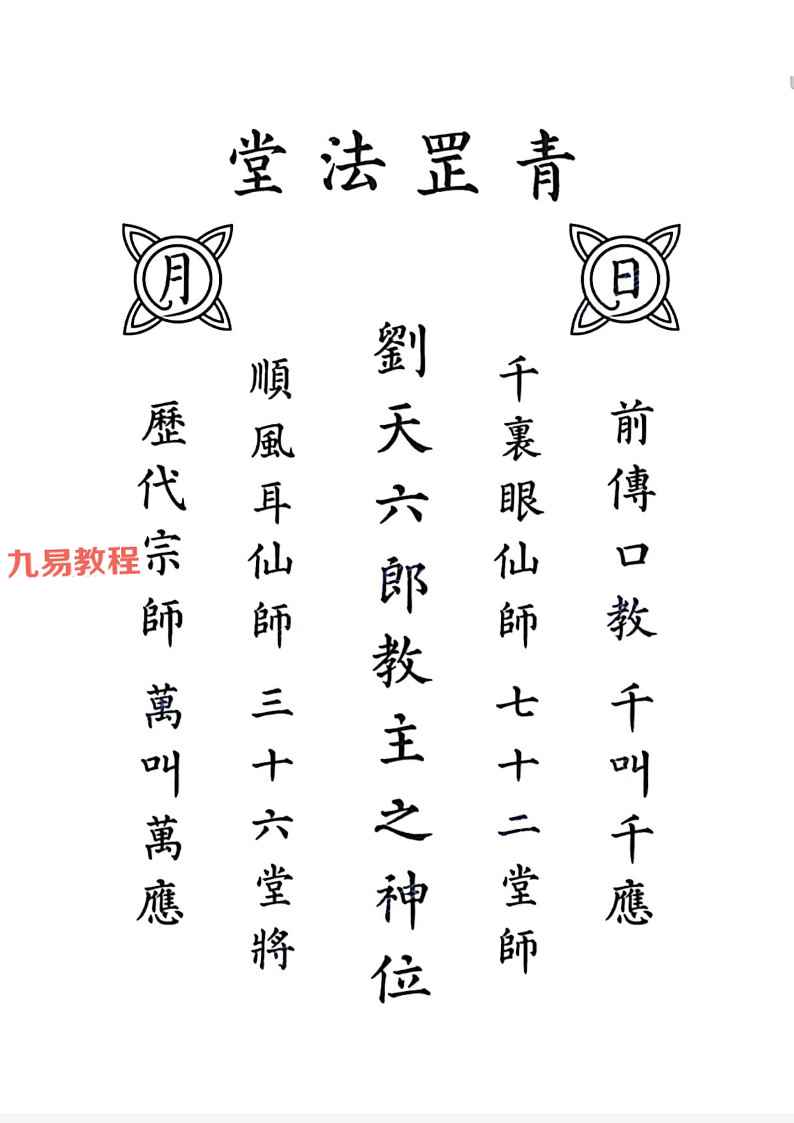 青罡法堂
日
月
前傳口教 千叫千應
千裏眼仙師 七十二堂師
劉天六郎教主之神位
順風耳仙師 三十六堂將
歷代宗師 萬叫萬應
九易教程